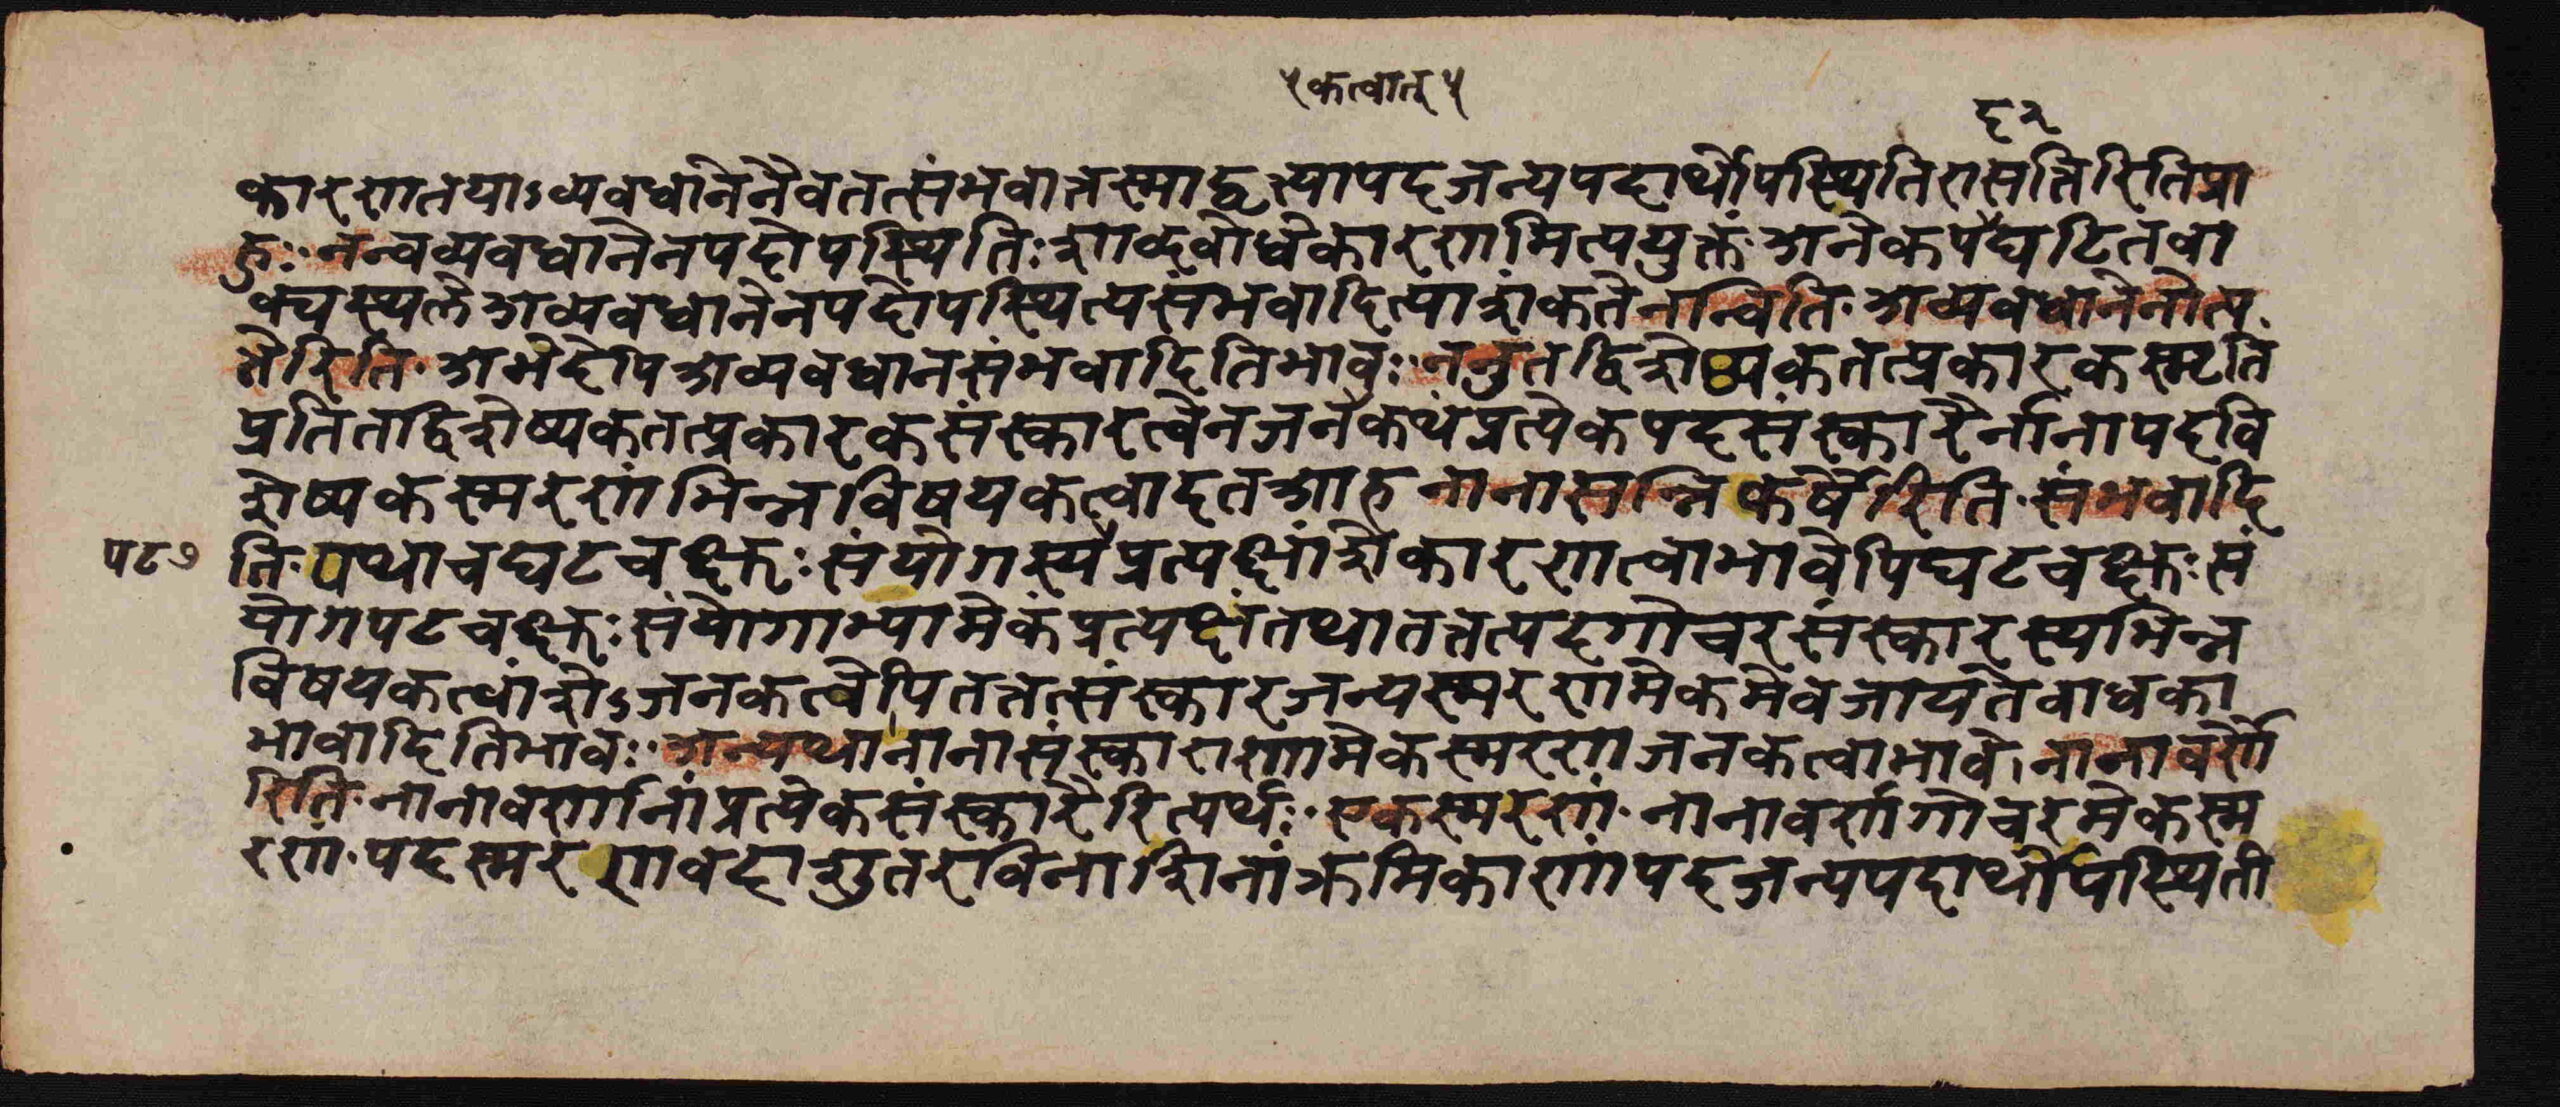 कत्वात् ५
द २
कारणतयाऽव्यवधानेनैवतत्संभवात्तस्माद्वृत्यापदजन्यपदार्थोपस्थितिरासत्तिरितिप्रा
हुः नन्वव्यवधानेनपदोपस्थितिः शाब्दबोधेकारणमित्ययुक्तं अनेकपघटितवा
क्यस्थले अव्यवधानेनपदोपस्थित्यसंभवादित्याशंकते नन्विति अव्यवधानेनोत्प
त्तेरिति अभेदेपिअव्यवधानसंभवादितिभावः ननुतद्विशेष्यकतत्प्रकारकस्मृति
प्रतितद्विशेष्यकतत्प्रकारकसंस्कारत्वेनजनकथंप्रत्येकपदसंस्कारैर्नानापदवि
शेष्यकस्मरणंभिन्नविषयकत्वादतआह नानासन्निकर्षैरिति संभवादि
पट ७
ति यथाचघटचक्षुः संयोगस्यप्रत्यक्षांशेकारणत्वाभावेपिघटचक्षुः सं
योगपटचक्षुः संयोगाभ्यामेकंप्रत्यक्षंतथातत्तत्पदगोचरसंस्कारस्यभिन्न
विषयकत्वांशेऽजनकत्वेपितत्तत्संस्कारजन्यस्मरणमेकमेवजायतेबाधका
भावादितिभावः अन्यथानानासंस्काराणामेकस्मरणजनकत्वाभावे नानावर्णै
रिति नानावर्णानांप्रत्येकसंस्कारैरित्यर्थः एकस्मरणं नानावर्णगोचरमेकस्म
रणं पदस्मरणवदाशुतरविनाशिनांक्रमिकाणांपदजन्यपदार्थोपस्थिती